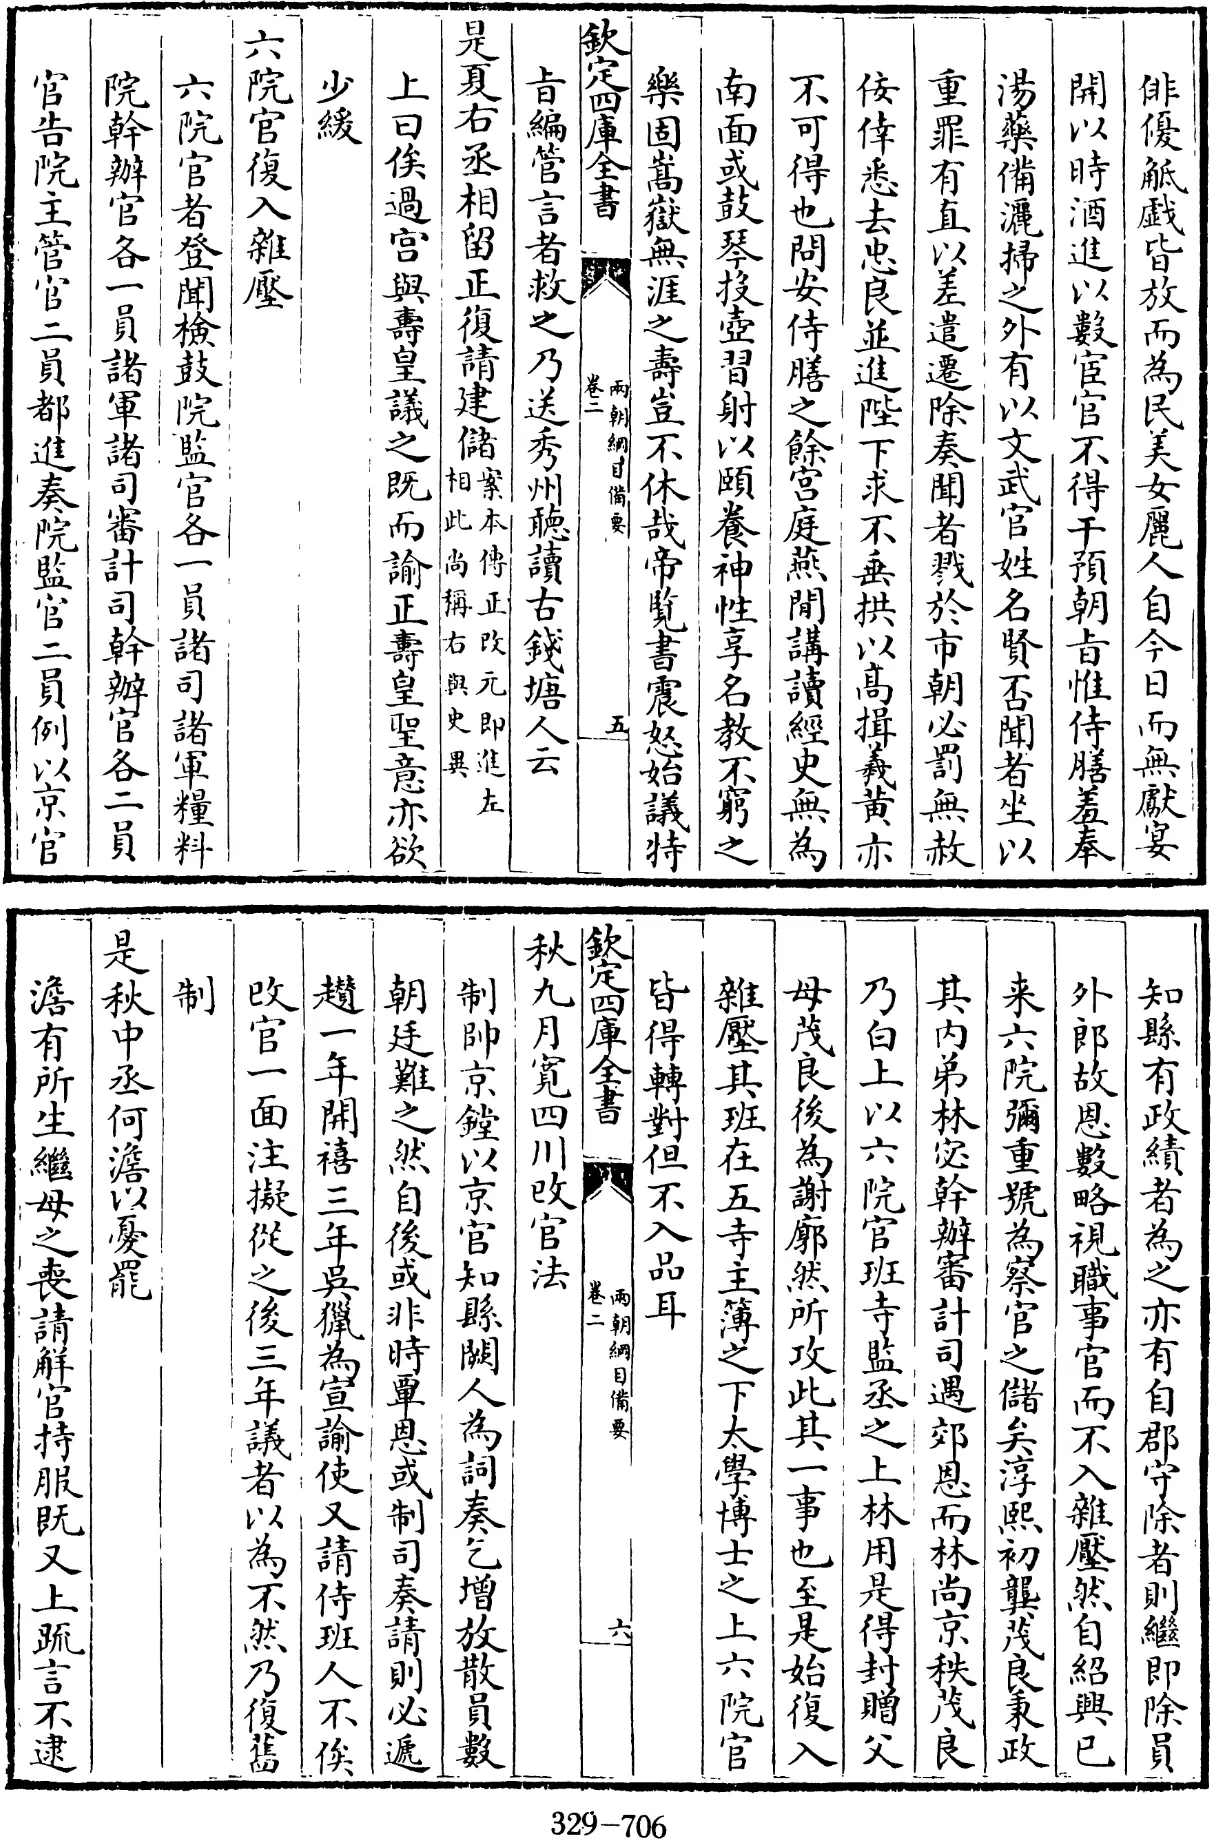 俳優觝戲皆放而為民美女麗人自今日而無獻宴
開以時酒進以數宦官不得干預朝旨惟侍膳羞奉
湯藥備灑掃之外有以文武官姓名賢否聞者坐以
重罪有直以差遣遷除奏聞者戮於市朝必罰無赦
佞倖悉去忠良並進陛下求不垂拱以高揖羲黄亦
不可得也問安侍膳之餘宮庭燕閒講讀經史無為
南面或鼓琴投壺習射以頤養神性享名教不窮之
樂固嵩嶽無涯之壽豈不休哉帝覽書震怒始議特
欽定四庫全書
兩朝綱目備要
卷二
五
旨編管言者救之乃送秀州聽讀古錢塘人云
是夏右丞相留正復請建儲案本傳正改元即進左
相此尚稱右與史異
上曰俟過宮與壽皇議之既而諭正壽皇聖意亦欲
少緩
六院官復入雜壓
六院官者登聞檢鼓院監官各一員諸司諸軍糧料
院幹辦官各一員諸軍諸司審計司幹辦官各二員
官告院主管官二員都進奏院監官二員例以京官
知縣有政績者為之亦有自郡守除者則繼即除員
外郎故恩數略視職事官而不入雜壓然自紹興已
来六院彌重號為察官之儲矣淳熙初龔茂良秉政
其内弟林宓幹辦審計司遇郊恩而林尚京秩茂良
乃白上以六院官班寺監丞之上林用是得封贈父
母茂良後為謝廓然所攻此其一事也至是始復入
雜壓其班在五寺主簿之下太學博士之上六院官
皆得轉對但不入品耳
欽定四庫全書
兩朝綱目備要
卷二
六
秋九月寛四川改官法
制帥京鏜以京官知縣闕人為詞奏乞增放散員數
朝廷難之然自後或非時覃恩或制司奏請則必遞
趲一年開禧三年吳獵為宣諭使又請侍班人不俟
改官一面注擬從之後三年議者以為不然乃復舊
制
是秋中丞何澹以憂罷
澹有所生繼母之喪請解官持服既又上疏言不逮
329-706